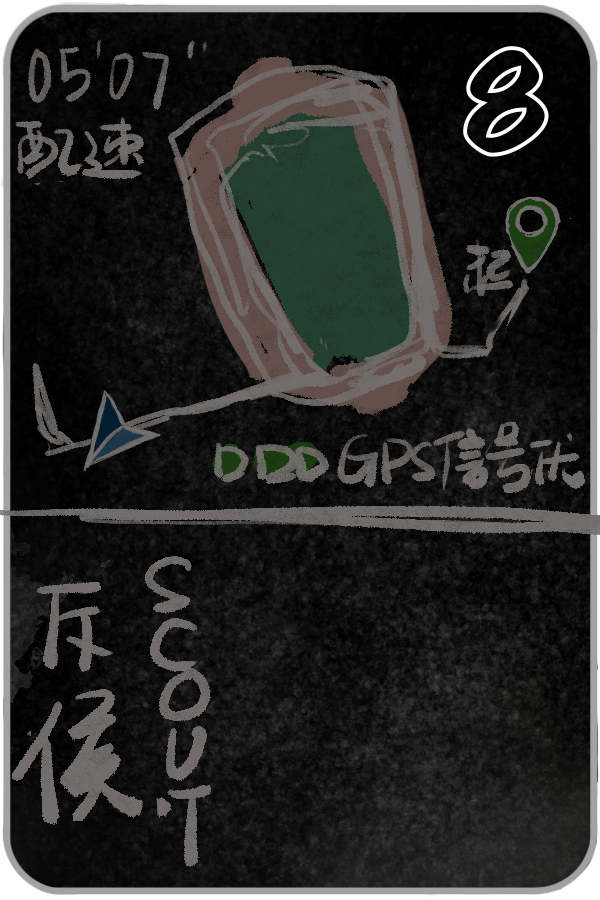 05'07"
8
配速
起
GPS信号优
斥
侯
SCOUT